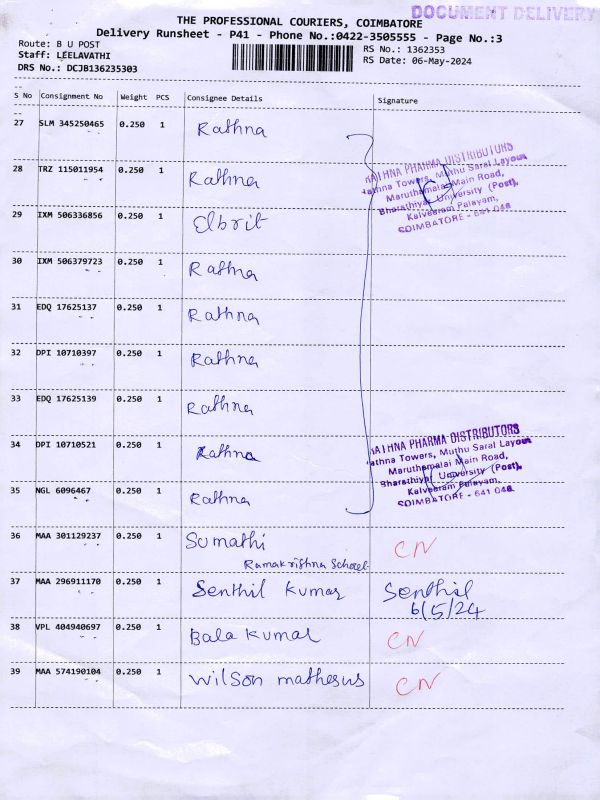 DOCUMENT DELIVERY
THE PROFESSIONAL COURIERS, COIMBATORE
Delivery Runsheet - P41 - Phone No.:0422-3505555 - Page No.:3
Route: B U POST
RS No.: 1362353
Staff: LEELAVATHI
RS Date: 06-May-2024
DRS No.: DCJB136235303
S No Consignment No Weight PCS Consignee Details Signature
27 SLM 345250465 0.250 1 Rathna
28 TRZ 115011954 0.250 1 Rathna
29 IXM 506336856 0.250 1 Elbrit
30 IXM 506379723 0.250 1 Rathna
31 EDQ 17625137 0.250 1 Rathna
32 DPI 10710397 0.250 1 Rathna
33 EDQ 17625139 0.250 1 Rathna
34 DPI 10710521 0.250 1 Rathna
35 NGL 6096467 0.250 1 Rathna
RATHNA PHARMA DISTRIBUTORS
Rathna Towers, Muthu Saral Layout
Maruthamalai Main Road,
Bharathiyar University (Post),
Kalveeram Palayam,
COIMBATORE - 641 046
RATHNA PHARMA DISTRIBUTORS
Rathna Towers, Muthu Saral Layout
Maruthamalai Main Road,
Bharathiyar University (Post),
Kalveeram Palayam,
COIMBATORE - 641 046
36 MAA 301129237 0.250 1 Sumathi CN
Ramakrishna School
37 MAA 296911170 0.250 1 Senthil Kumar Senthil
6/5/24
38 VPL 404940697 0.250 1 Bala Kumar CN
39 MAA 574190104 0.250 1 Wilson mathesus CN